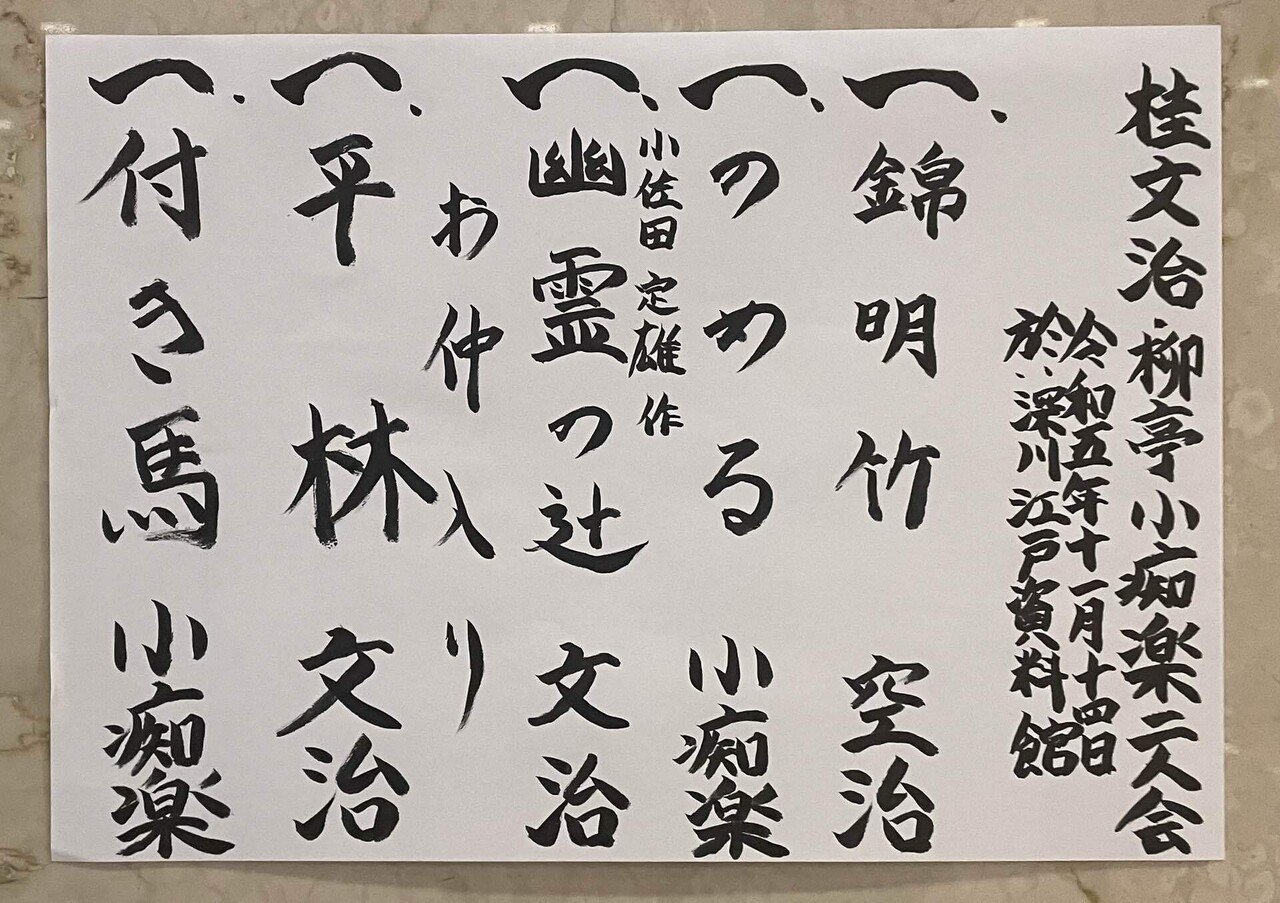 桂文治・柳亭小痴楽二人会
令和五年十一月十四日
於：深川江戸資料館
一、錦明竹 空治
一、のめる 小痴楽
小佐田定雄作
一、幽霊の辻 文治
お仲入り
一、平林 文治
一、付き馬 小痴楽